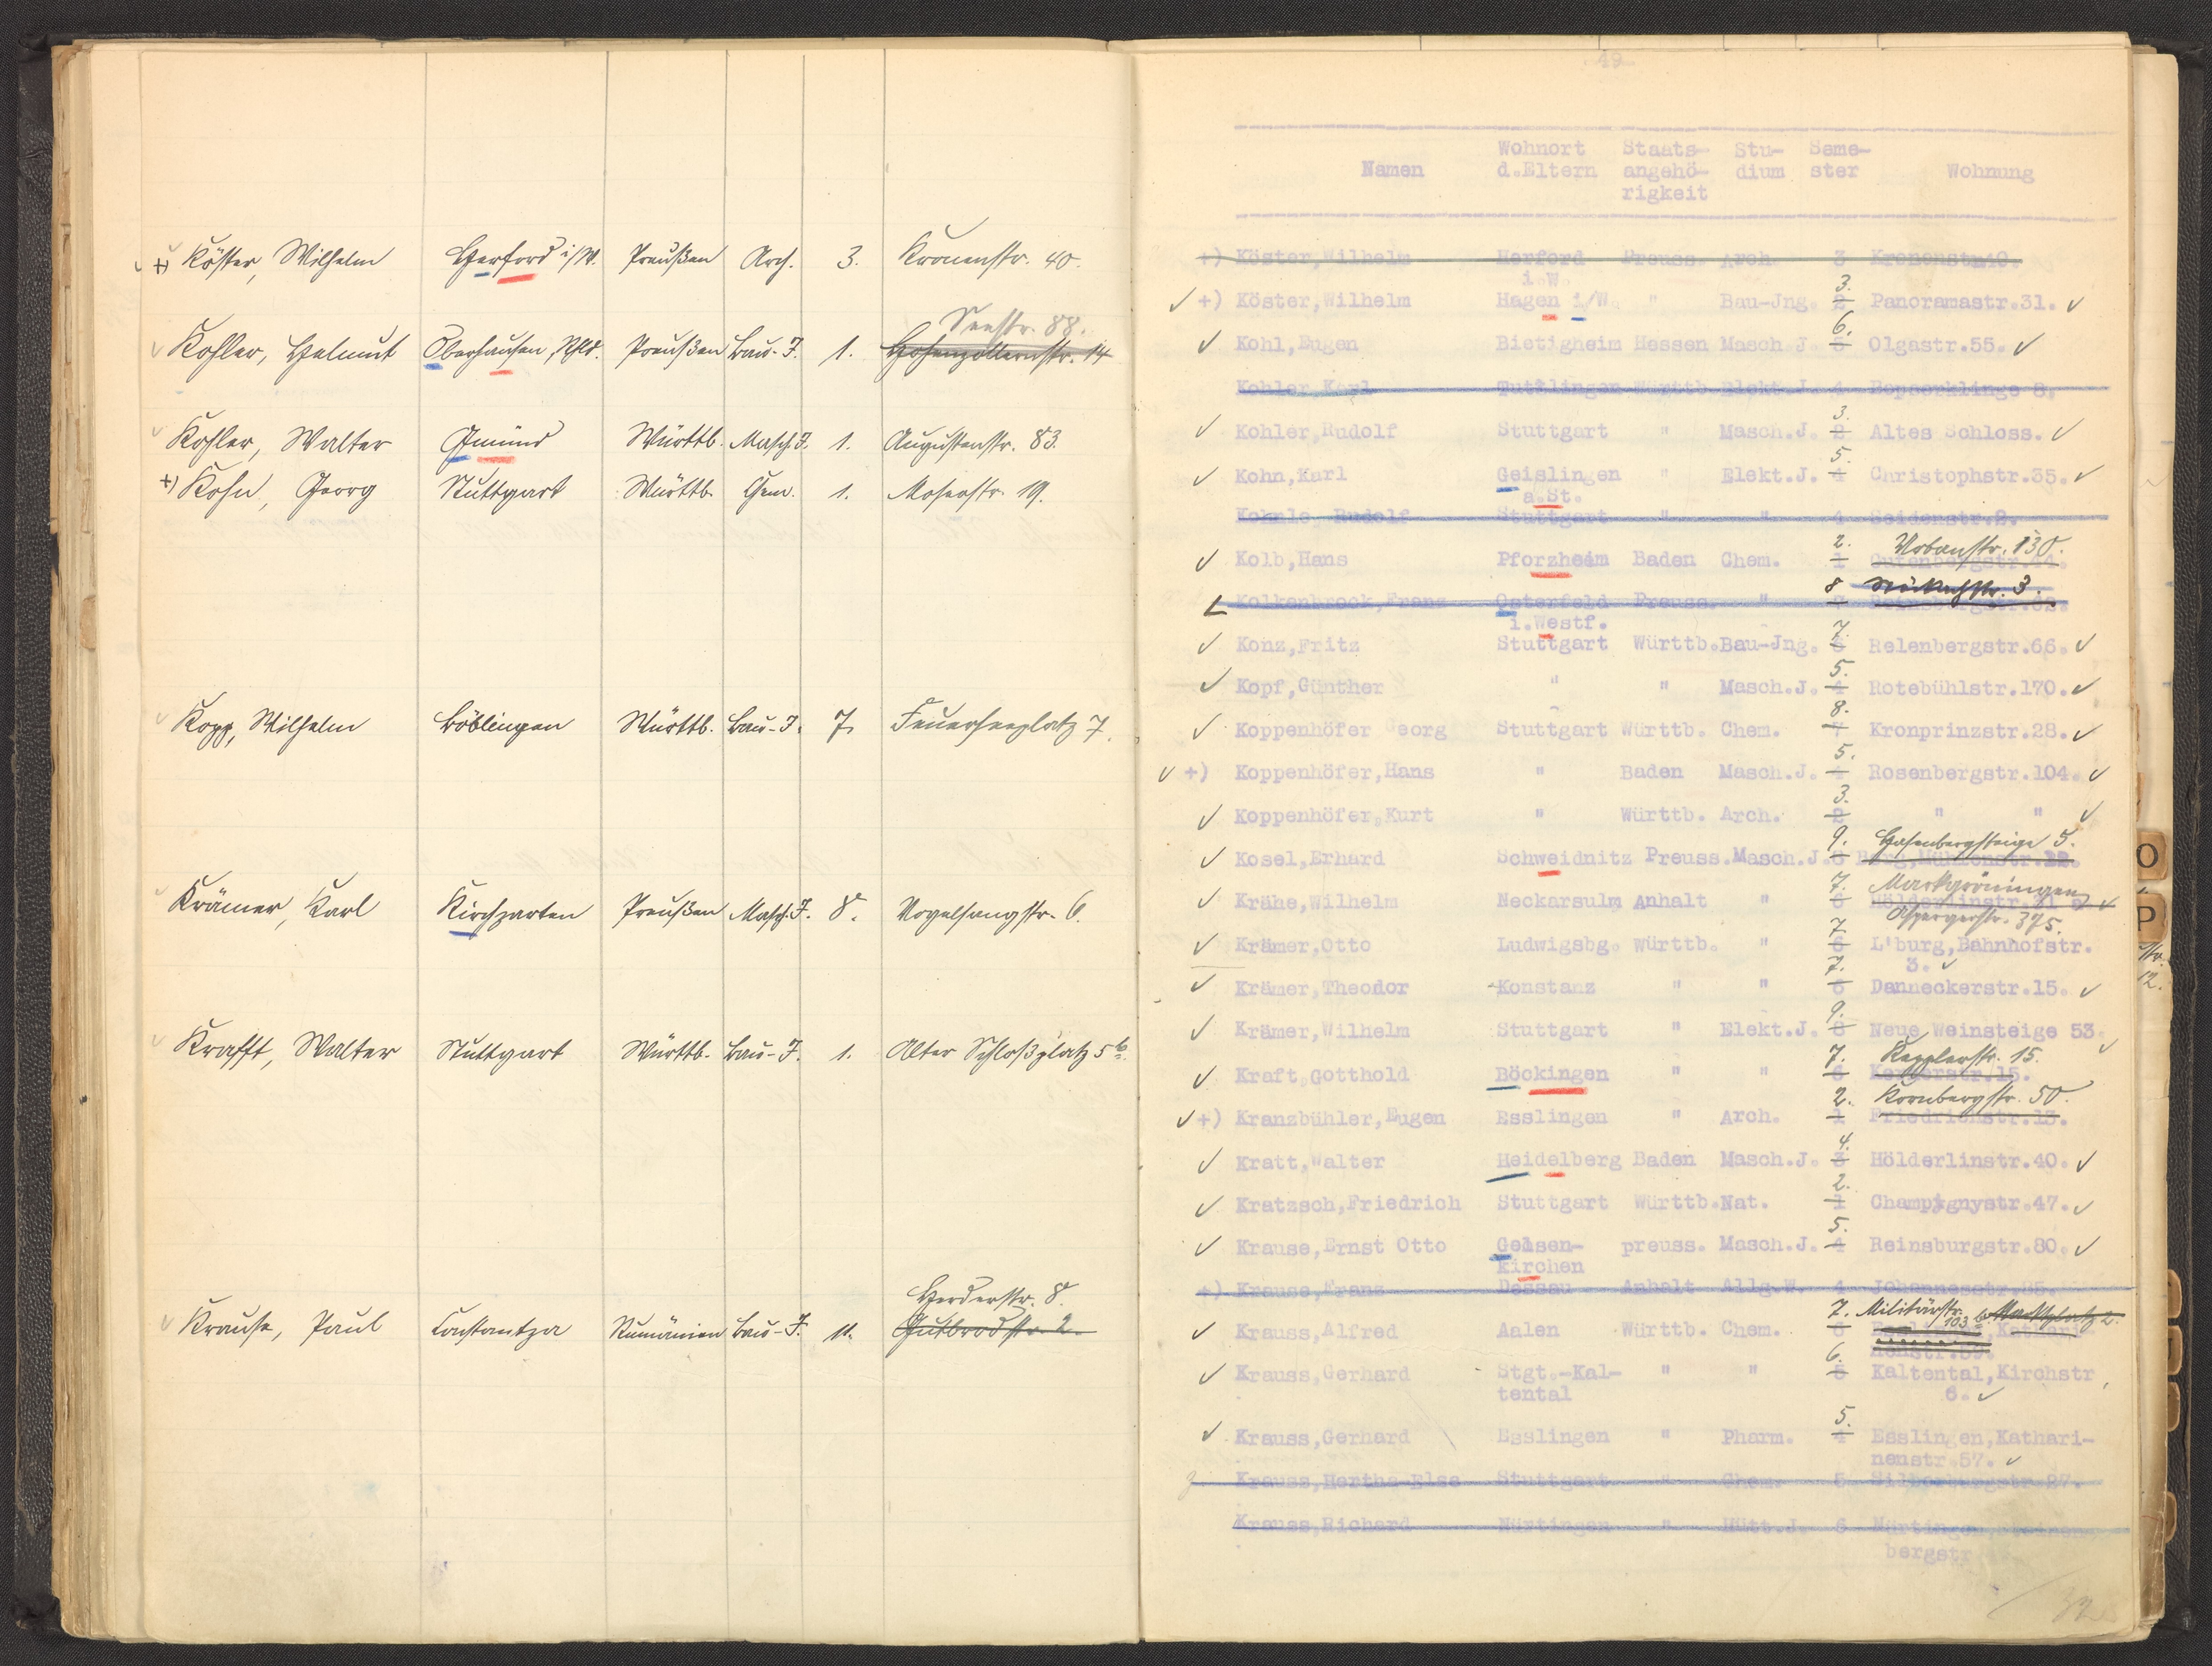 +) Köster, Wilhelm Herford i/W. Preußen Arch. 3. Kronenstr. 40.
Seestr. 88.
Kohler, Helmut Oberhausen, Rhld. Preußen Bau-J. 1. Hohenzollernstr. 14
Kohler, Walter Gmünd Württb. Masch.J. 1. Augustenstr. 83.
+) Kohn, Georg Stuttgart Württb. Chem. 1. Moserstr. 19.
Kopp, Wilhelm Böblingen Württb. Bau-J. 7. Feuerseeplatz 7.
Krämer, Karl Kirchzarten Preußen Masch.J. 8. Vogelsangstr. 6.
Krafft, Walter Stuttgart Württb. Bau-J. 1. Alter Schloßplatz 5b.
Herderstr. 8.
Krause, Paul Constantza Rumänien Bau-J. 11. Gutbrodstr. 2.
49
Wohnort Staats- Stu- Seme-
Namen d.Eltern angehö- dium ster Wohnung
rigkeit
+) Köster,Wilhelm Herford Preuss. Arch. 3 Kronenstr.40.
i.W. 3.
+) Köster,Wilhelm Hagen i/W. " Bau-Jng. 2 Panoramastr.31.
6.
Kohl,Eugen Bietigheim Hessen Masch.J. 5 Olgastr.55.
Kohler,Karl Tuttlingen Württb. Elekt.J. 4 Bopserklinge 8.
3.
Kohler,Rudolf Stuttgart " Masch.J. 2 Altes Schloss.
5.
Kohn,Karl Geislingen " Elekt.J. 4 Christophstr.35.
a.St.
Rudolf Stuttgart " " 4 Seidenstr.2.
2. Urbanstr. 130.
Kolb,Hans Pforzheim Baden Chem. 1 Gutenbergstr.
8 3.
Kolkenbrock,Franz Osterfeld Preuss. "
i.Westf. 7.
Konz,Fritz Stuttgart Württb. Bau-Jng. 6 Relenbergstr.66.
5.
Kopf,Günther " " Masch.J. 4 Rotebühlstr.170.
8.
Koppenhöfer Georg Stuttgart Württb. Chem. 7 Kronprinzstr.28.
5.
+) Koppenhöfer,Hans " Baden Masch.J. 4 Rosenbergstr.104.
3.
Koppenhöfer,Kurt " Württb. Arch. 2 " "
9. Hasenbergsteige 5.
Kosel,Erhard Schweidnitz Preuss. Masch.J. 8
7. Markgröningen
Krähe,Wilhelm Neckarsulm Anhalt " 6 Hölderlinstr.
7. Aspergerstr. 375.
Krämer,Otto Ludwigsbg. Württb. " 6 L'burg,Bahnhofstr.
7. 3.
Krämer,Theodor Konstanz " " 6 Danneckerstr.15.
9.
Krämer,Wilhelm Stuttgart " Elekt.J. 8 Neue Weinsteige 53.
7. Kepplerstr. 15.
Kraft,Gotthold Böckingen " " 6 Kernerstr.15.
2. Kornbergstr. 50.
+) Kranzbühler,Eugen Esslingen " Arch. 1 Friedrichstr.13.
4.
Kratt,Walter Heidelberg Baden Masch.J. 3 Hölderlinstr.40.
2.
Kratzsch,Friedrich Stuttgart Württb. Nat. 1 Champignystr.47.
5.
Krause,Ernst Otto Gelsen- preuss. Masch.J. 4 Reinsburgstr.80.
kirchen
+) Krause,Franz Dessau Anhalt Allg.W. 4 Johannesstr.
7. Militärstr. 103 b. Marktplatz 2.
Krauss,Alfred Aalen Württb. Chem. 6
6.
Krauss,Gerhard Stgt.-Kal- " " 5 Kaltental,Kirchstr
tental 6.
5.
Krauss,Gerhard Esslingen " Pharm. 4 Esslingen,Kathari-
nenstr.57.
Krauss,Hertha Else Stuttgart " Chem. 5 Silberburgstr.27.
Krauss,Richard Nürtingen " Hütt.J. 6 Nürtingen
bergstr
O
P
str.
12.